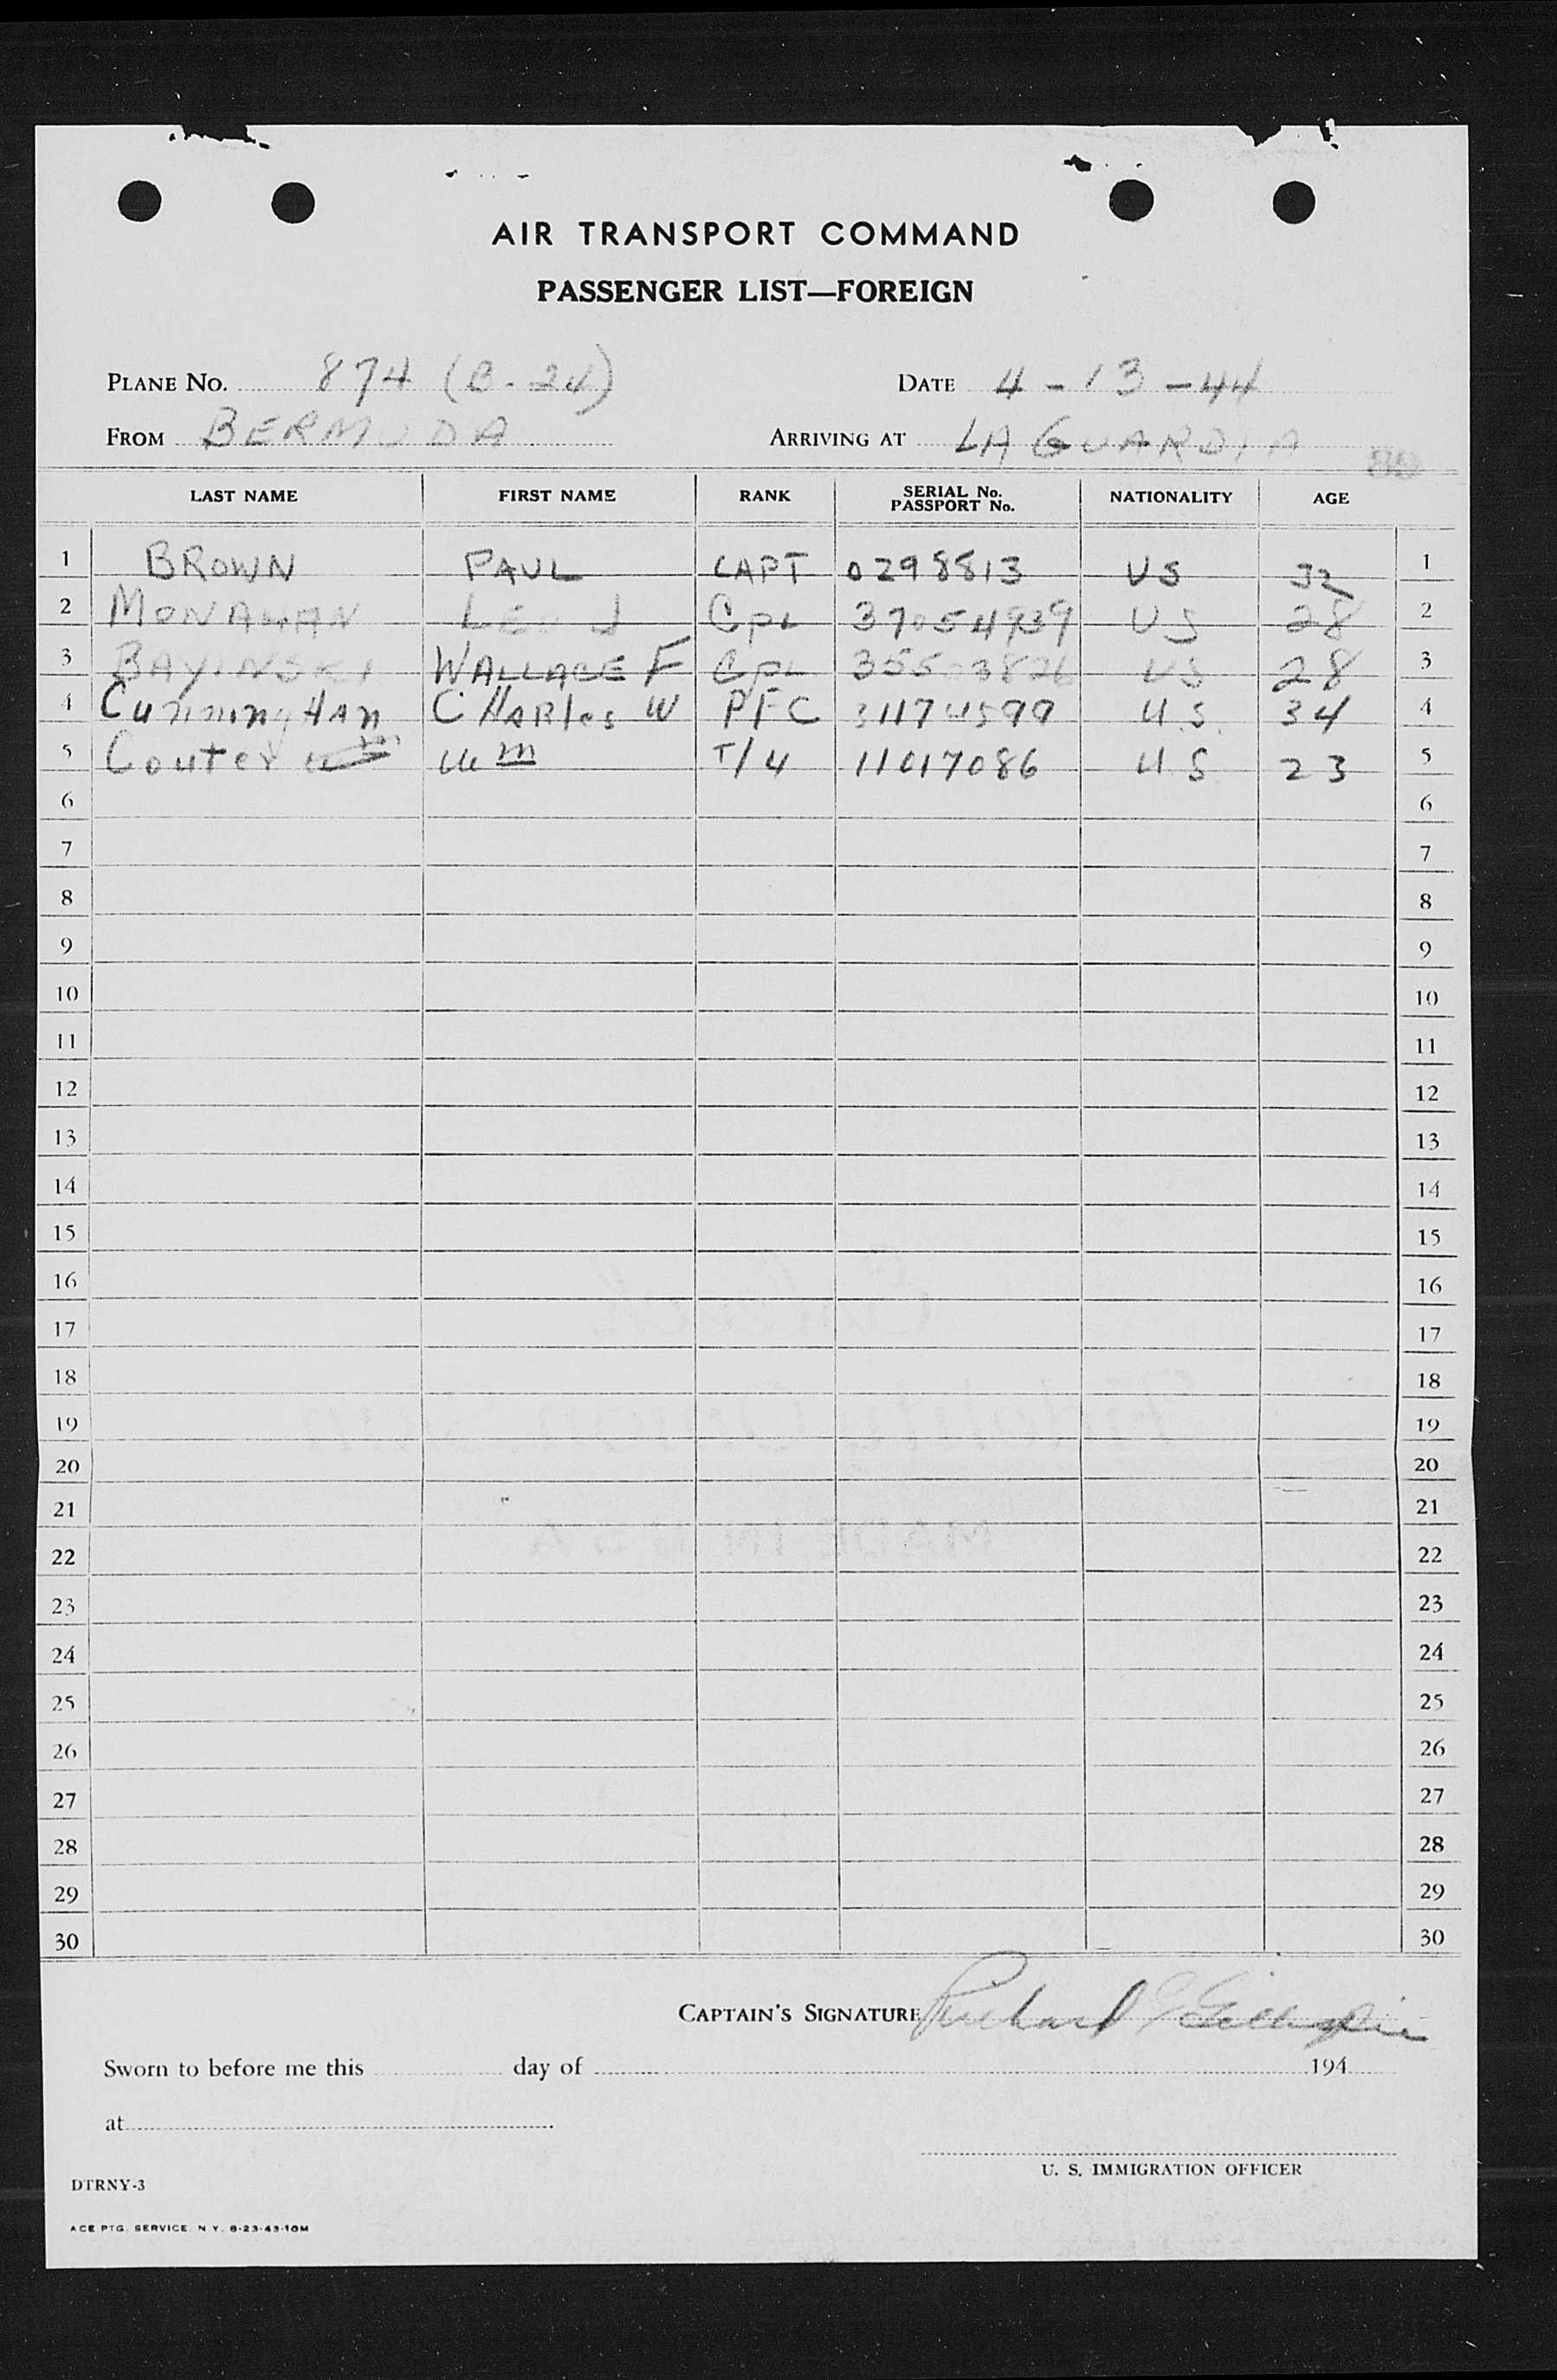 AIR TRANSPORT COMMAND
PASSENGER LIST—FOREIGN
PLANE NO. 874 (B-24) DATE 4-13-44
FROM BERMUDA ARRIVING AT LA GUARDIA
LAST NAME FIRST NAME RANK SERIAL No. PASSPORT No. NATIONALITY AGE
1 BROWN PAUL CAPT 0298813 US 32 1
2 MONAHAN LEO J CPL 37054939 US 28 2
3 BAYINSKI WALLACE F CPL US 28 3
4 CunningHAn CHARles W PFC US 34 4
5 Couter Wm T/4 11017086 US 23 5
6 6
7 7
8 8
9 9
10 10
11 11
12 12
13 13
14 14
15 15
16 16
17 17
18 18
19 19
20 20
21 21
MADE IN U S A
22 22
23 23
24 24
25 25
26 26
27 27
28 28
29 29
30 30
CAPTAIN'S SIGNATURE Richard G Gillespie
Sworn to before me this day of 194
at
U. S. IMMIGRATION OFFICER
DTRNY-3
ACE PTG. SERVICE. N.Y. 8-23-43-10M